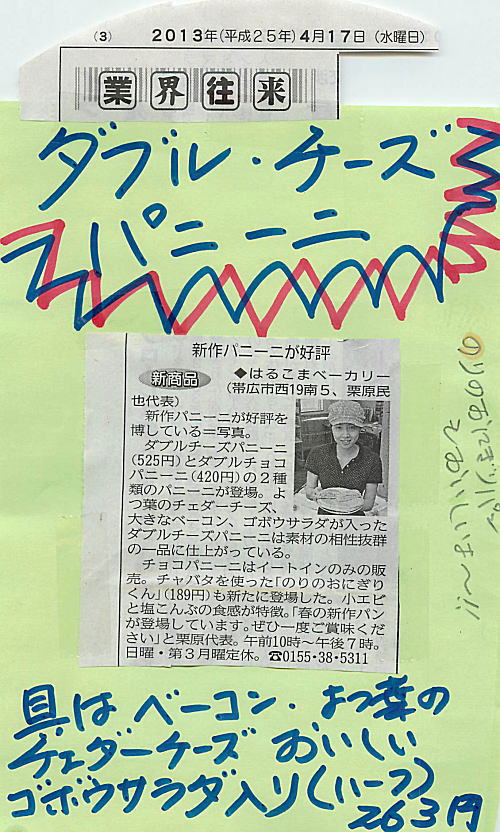 (3) 2013年(平成25年)4月17日(水曜日)
業界往来
ダブル・チーズ
パニーニ
新作パニーニが好評
新商品
◆はるこまベーカリー
(帯広市西19南5、栗原民
也代表)
新作パニーニが好評を
博している＝写真。
ダブルチーズパニーニ
(525円)とダブルチョコ
パニーニ(420円)の2種
類のパニーニが登場。よ
つ葉のチェダーチーズ、
大きなベーコン、ゴボウサラダが入った
ダブルチーズパニーニは素材の相性抜群
の一品に仕上がっている。
チョコパニーニはイートインのみの販
売。チャパタを使った「のりのおにぎり
くん」(189円)も新たに登場した。小エビ
と塩こんぶの食感が特徴。「春の新作パン
が登場しています。ぜひ一度ご賞味くださ
い」と栗原代表。午前10時～午後7時。
日曜・第3月曜定休。☎0155・38・5311
のりのおにぎりパン
とおいしいよ〜!!
具はベーコン・よつ葉の
チェダーチーズ おいしい
ゴボウサラダ入り(ハーフ)
263円